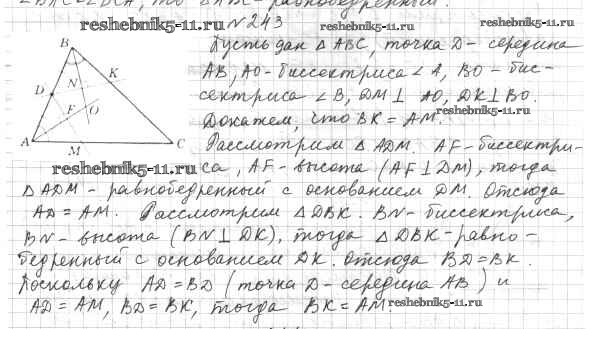 ∠BAC = ∠BCA, то △ABC - равнобедренный.
reshebnik5-11.ru №243 reshebnik5-11.ru reshebnik5-11.ru
Пусть дан △ABC, точка D - середина
AB, AO - биссектриса ∠A, BO - бис-
сектриса ∠B, DM ⊥ AO, DK ⊥ BO.
Докажем, что BK = AM.
reshebnik5-11.ru
Рассмотрим △ADM. AF - биссектри-
са, AF - высота (AF ⊥ DM), тогда
reshebnik5-11.ru
△ADM - равнобедренный с основанием DM. Отсюда
AD = AM. Рассмотрим △DBK. BN - биссектриса,
BN - высота (BN ⊥ DK), тогда △DBK - равно-
бедренный с основанием DK. Отсюда BD = BK.
Поскольку AD = BD (точка D - середина AB) и
AD = AM, BD = BK, тогда BK = AM.
reshebnik5-11.ru
B
K
N
D
F
O
A
M
C